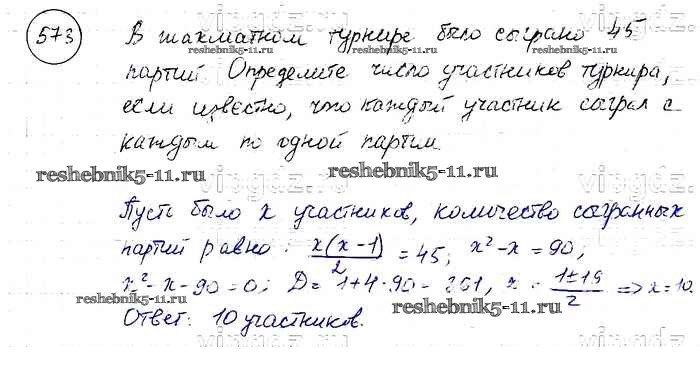 573
В шахматном турнире было сыграно 45
партий Определите число участников турнира,
если известно, что каждый участник сыграл с
каждым по одной партии.
Пусть было x участников, количество сыгранных
партий равно: x(x-1)/2 = 45; x²-x=90,
x²-x-90=0; D=1+4·90=361, x = 1±19/2 => x=10
Ответ: 10 участников.
reshebnik5-11.ru
reshebnik5-11.ru
reshebnik5-11.ru
reshebnik5-11.ru
reshebnik5-11.ru
reshebnik5-11.ru